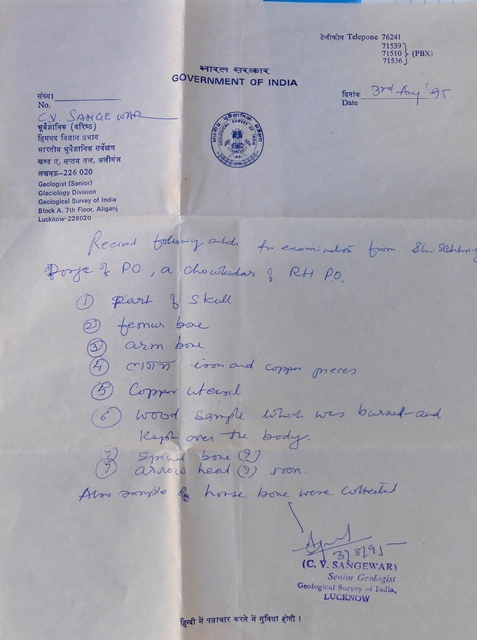 टेलीफोन Telepone 76241
71539
71510 (PBX)
71536
भारत सरकार
GOVERNMENT OF INDIA
संख्या
No.
दिनांक
Date 3rd Aug '95
C.V. SANGEWAR
भूवैज्ञानिक (वरिष्ठ)
हिमनद विज्ञान प्रभाग
भारतीय भूवैज्ञानिक सर्वेक्षण
खण्ड ए, सप्तम तल, अलीगंज
लखनऊ-226 020
Geologist (Senior)
Glaciology Division
Geological Survey of India
Block A, 7th Floor, Aliganj
Lucknow-226020
GEOLOGICAL SURVEY OF INDIA
Received following articles for examination from Shri
of PO, a chowkidar of RH PO.
① Part of Skull
② femur bone
③ arm bone
④ iron and copper pieces
⑤ Copper utensil
⑥ wood sample which was burned and
kept over the body.
⑦ Spinal bone (2)
⑦ arrow head (?) iron.
Also sample of horse bone were collected
3/8/95
(C. V. SANGEWAR)
Senior Geologist
Geological Survey of India,
LUCKNOW
हिन्दी में पत्राचार करने में सुविधा होगी।